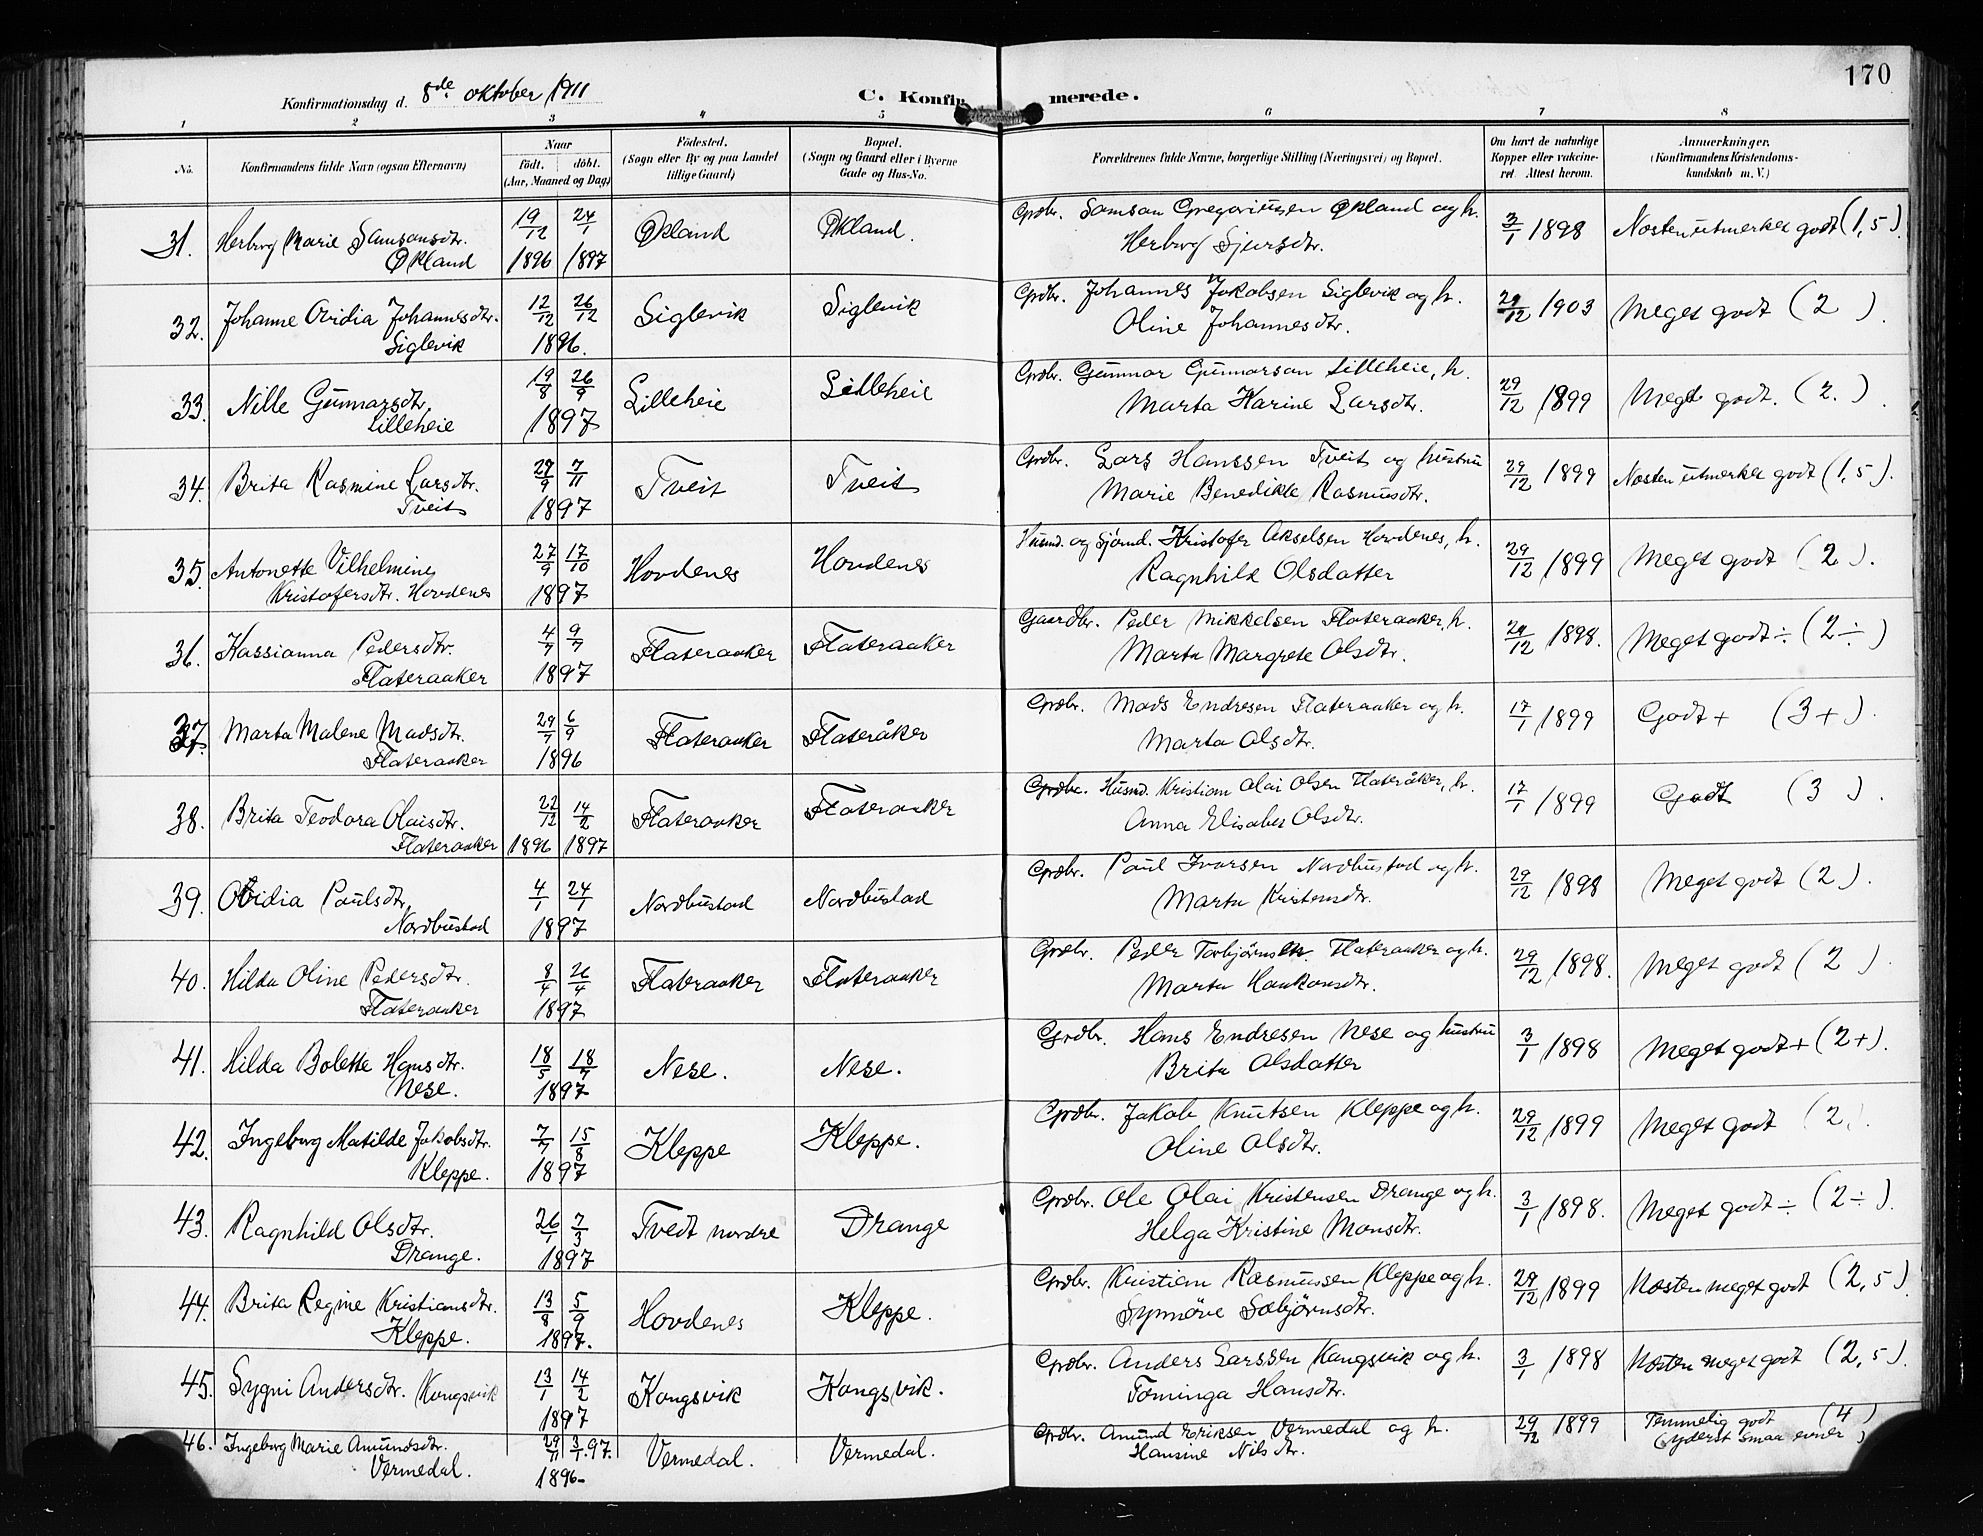 170
Konfirmationsdag d. 8de oktober 1911 C. Konfirmerede.
1 2 3 4 5 6 7 8
No. Konfirmandens fulde Navn (ogsaa Efternavn) Naar Födt. döbt. (Aar, Maaned og Dag) Födested. (Sogn eller By og paa Landet tillige Gaard) Bopæl. (Sogn og Gaard eller i Byerne Gade og Hus-No. Forældrenes fulde Navne, borgerlige Stilling (Næringsvei) og Bopæl. Om havt de naturlige Kopper eller vaccineret. Attest herom. Anmerkninger. (Konfirmandens Kristendomskundskab m. V.)
31. Herborg Marie Samsonsdtr. 19/12 24/1 Økland Økland. Grdbr. Samson Gregoriussen Økland og h. 3/1 1898 Næsten utmerket godt (1,5).
Økland 1896 1897 Herborg Sjursdtr.
32. Johanne Ovidia Johannesdtr. 12/12 26/12 Siglevik Siglevik Grdbr. Johannes Jakobsen Siglevik og h. 29/12 1903 Meget godt (2).
Siglevik 1896. Oline Johannesdtr.
33. Nille Gunnarsdtr. 19/8 26/9 Lilleheie Lilleheie Grdbr. Gunnar Gunnarson Lilleheie, h. 29/12 1899 Meget godt. (2.).
Lilleheie 1897 Marta Karine Larsdtr.
34. Brita Rasmine Larsdtr. 29/9 7/11 Tveit Tveit Grdbr. Lars Hanssen Tveit og hustru 29/12 1899 Næsten utmerket godt (1,5).
Tveit 1897 Marie Benedikte Rasmusdtr.
35. Antonette Vilhelmine 27/9 17/10 Hovdenes Hovdenes Husmd. og Sjömd. Kristofer Akselsen Hovdenes, h. 29/12 1899 Meget godt (2).
Kristofersdtr. Hovdenes 1897 Ragnhild Olsdatter
36. Kassianna Pedersdtr. 4/7 9/7 Flateraaker Flateraaker Gaardbr. Peder Mikkelsen Flateraaker, h. 29/12 1898. Meget godt ÷ (2÷)
Flateraaker 1897 Marta Margrete Olsdtr.
37. Marta Malene Madsdtr. 29/7 6/9 Flateraaker Flateråker Grdbr. Mads Endresen Flateraaker og h. 17/1 1899 Godt + (3+).
Flateraaker 1896 Marta Olsdtr.
38. Brita Teodora Olaisdtr. 22/12 14/2 Flateraaker Flateraaker Grdbr. Husmd. Kristian Olai Olsen Flateråker, h. 17/1 1899 Godt (3).
Flateraaker 1896 1897 Anna Elisabet Olsdtr.
39. Ovidia Paulsdtr. 4/1 24/1 Nordhustad Nordhustad Grdbr. Paul Ivarsen Nordhustad og h. 29/12 1898 Meget godt (2).
Nordhustad 1897 Marta Kristensdtr.
40. Hilda Oline Pedersdtr. 8/4 26/4 Flateraaker Flateraaker Grdbr. Peder Torbjørnsen Flateraaker og h. 29/12 1898. Meget godt (2).
Flateraaker 1897 Marta Haakonsdtr.
41. Hilda Bolette Hansdtr. 18/5 18/7 Nese. Nese. Grdbr. Hans Endresen Nese og hustru 3/1 1898 Meget godt + (2+).
Nese. 1897 Brita Olsdatter
42. Ingeborg Matilde Jakobsdtr. 7/7 15/8 Kleppe Kleppe. Grdbr. Jakob Knutsen Kleppe og h. 29/12 1899 Meget godt (2).
Kleppe. 1897 Oline Olsdtr.
43. Ragnhild Olsdtr. 26/1 7/3 Tvedt nordre Drange Grdbr. Ole Olai Kristensen Drange og h. 3/1 1898. Meget godt ÷ (2÷).
Drange. 1897 Helga Kristine Monsdtr.
44. Brita Regine Kristiansdtr. 13/8 5/9 Hovdenes Kleppe. Grdbr. Kristian Rasmussen Kleppe og h. 29/12 1899 Næsten meget godt (2,5)
Kleppe. 1897. Synnöve Sæbjørnsdtr.
45. Sygni Andersdtr. Kongsvik 13/1 14/2 Kongsvik Kongsvik. Grdbr. Anders Larssen Kongsvik og h. 3/1 1898 Næsten meget godt (2,5).
1897 Tominga Hansdtr.
46. Ingeborg Marie Amundsdtr. 29/11 3/1.97. Vermedal. Vermedal. Grdbr. Amund Eriksen Vermedal og h. 29/12 1899 Temmelig godt (4)
Vermedal. 1896- Hansine Nilsdtr. (yderst smaa evner)